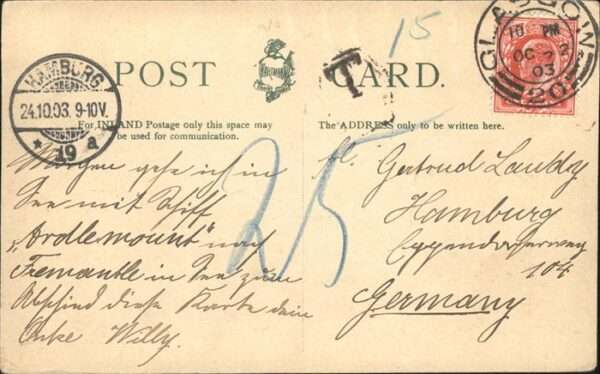 15
GLASGOW
10 PM
OC 2
03
20
HAMBURG
24.10.03. 9-10V.
* 19 a
POST CARD.
T
For INLAND Postage only this space may
be used for communication.
The ADDRESS only to be written here.
25
Morgen gehe ich in
See mit Schiff
„Ardlemount" nach
Fremantle in See zum
Abschied diese Karte dein
Onke Willy.
Gertrud
Hamburg
Eppendorferweg
104
Germany